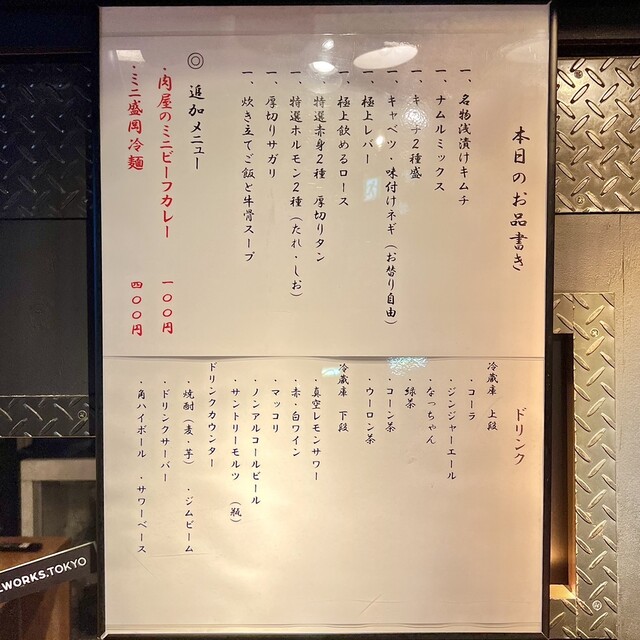 本日のお品書き
一、名物浅漬けキムチ
一、ナムルミックス
一、キムチ2種盛
一、キャベツ・味付けネギ(お替り自由)
一、極上レバー
一、極上飲めるロース
一、特選赤身2種 厚切りタン
一、特選ホルモン2種(たれ・しお)
一、厚切りサガリ
一、炊き立てご飯と牛骨スープ
◎ 追加メニュー
・肉屋のミニビーフカレー 一〇〇円
・ミニ盛岡冷麺 四〇〇円
ドリンク
冷蔵庫 上段
・コーラ
・ジンジャーエール
・なっちゃん
・緑茶
・コーン茶
・ウーロン茶
冷蔵庫 下段
・真空レモンサワー
・赤・白ワイン
・マッコリ
・ノンアルコールビール
・サントリーモルツ (瓶)
ドリンクカウンター
・焼酎(麦・芋) ・ジムビーム
・ドリンクサーバー
・角ハイボール ・サワーベース
WORKS.TOKYO